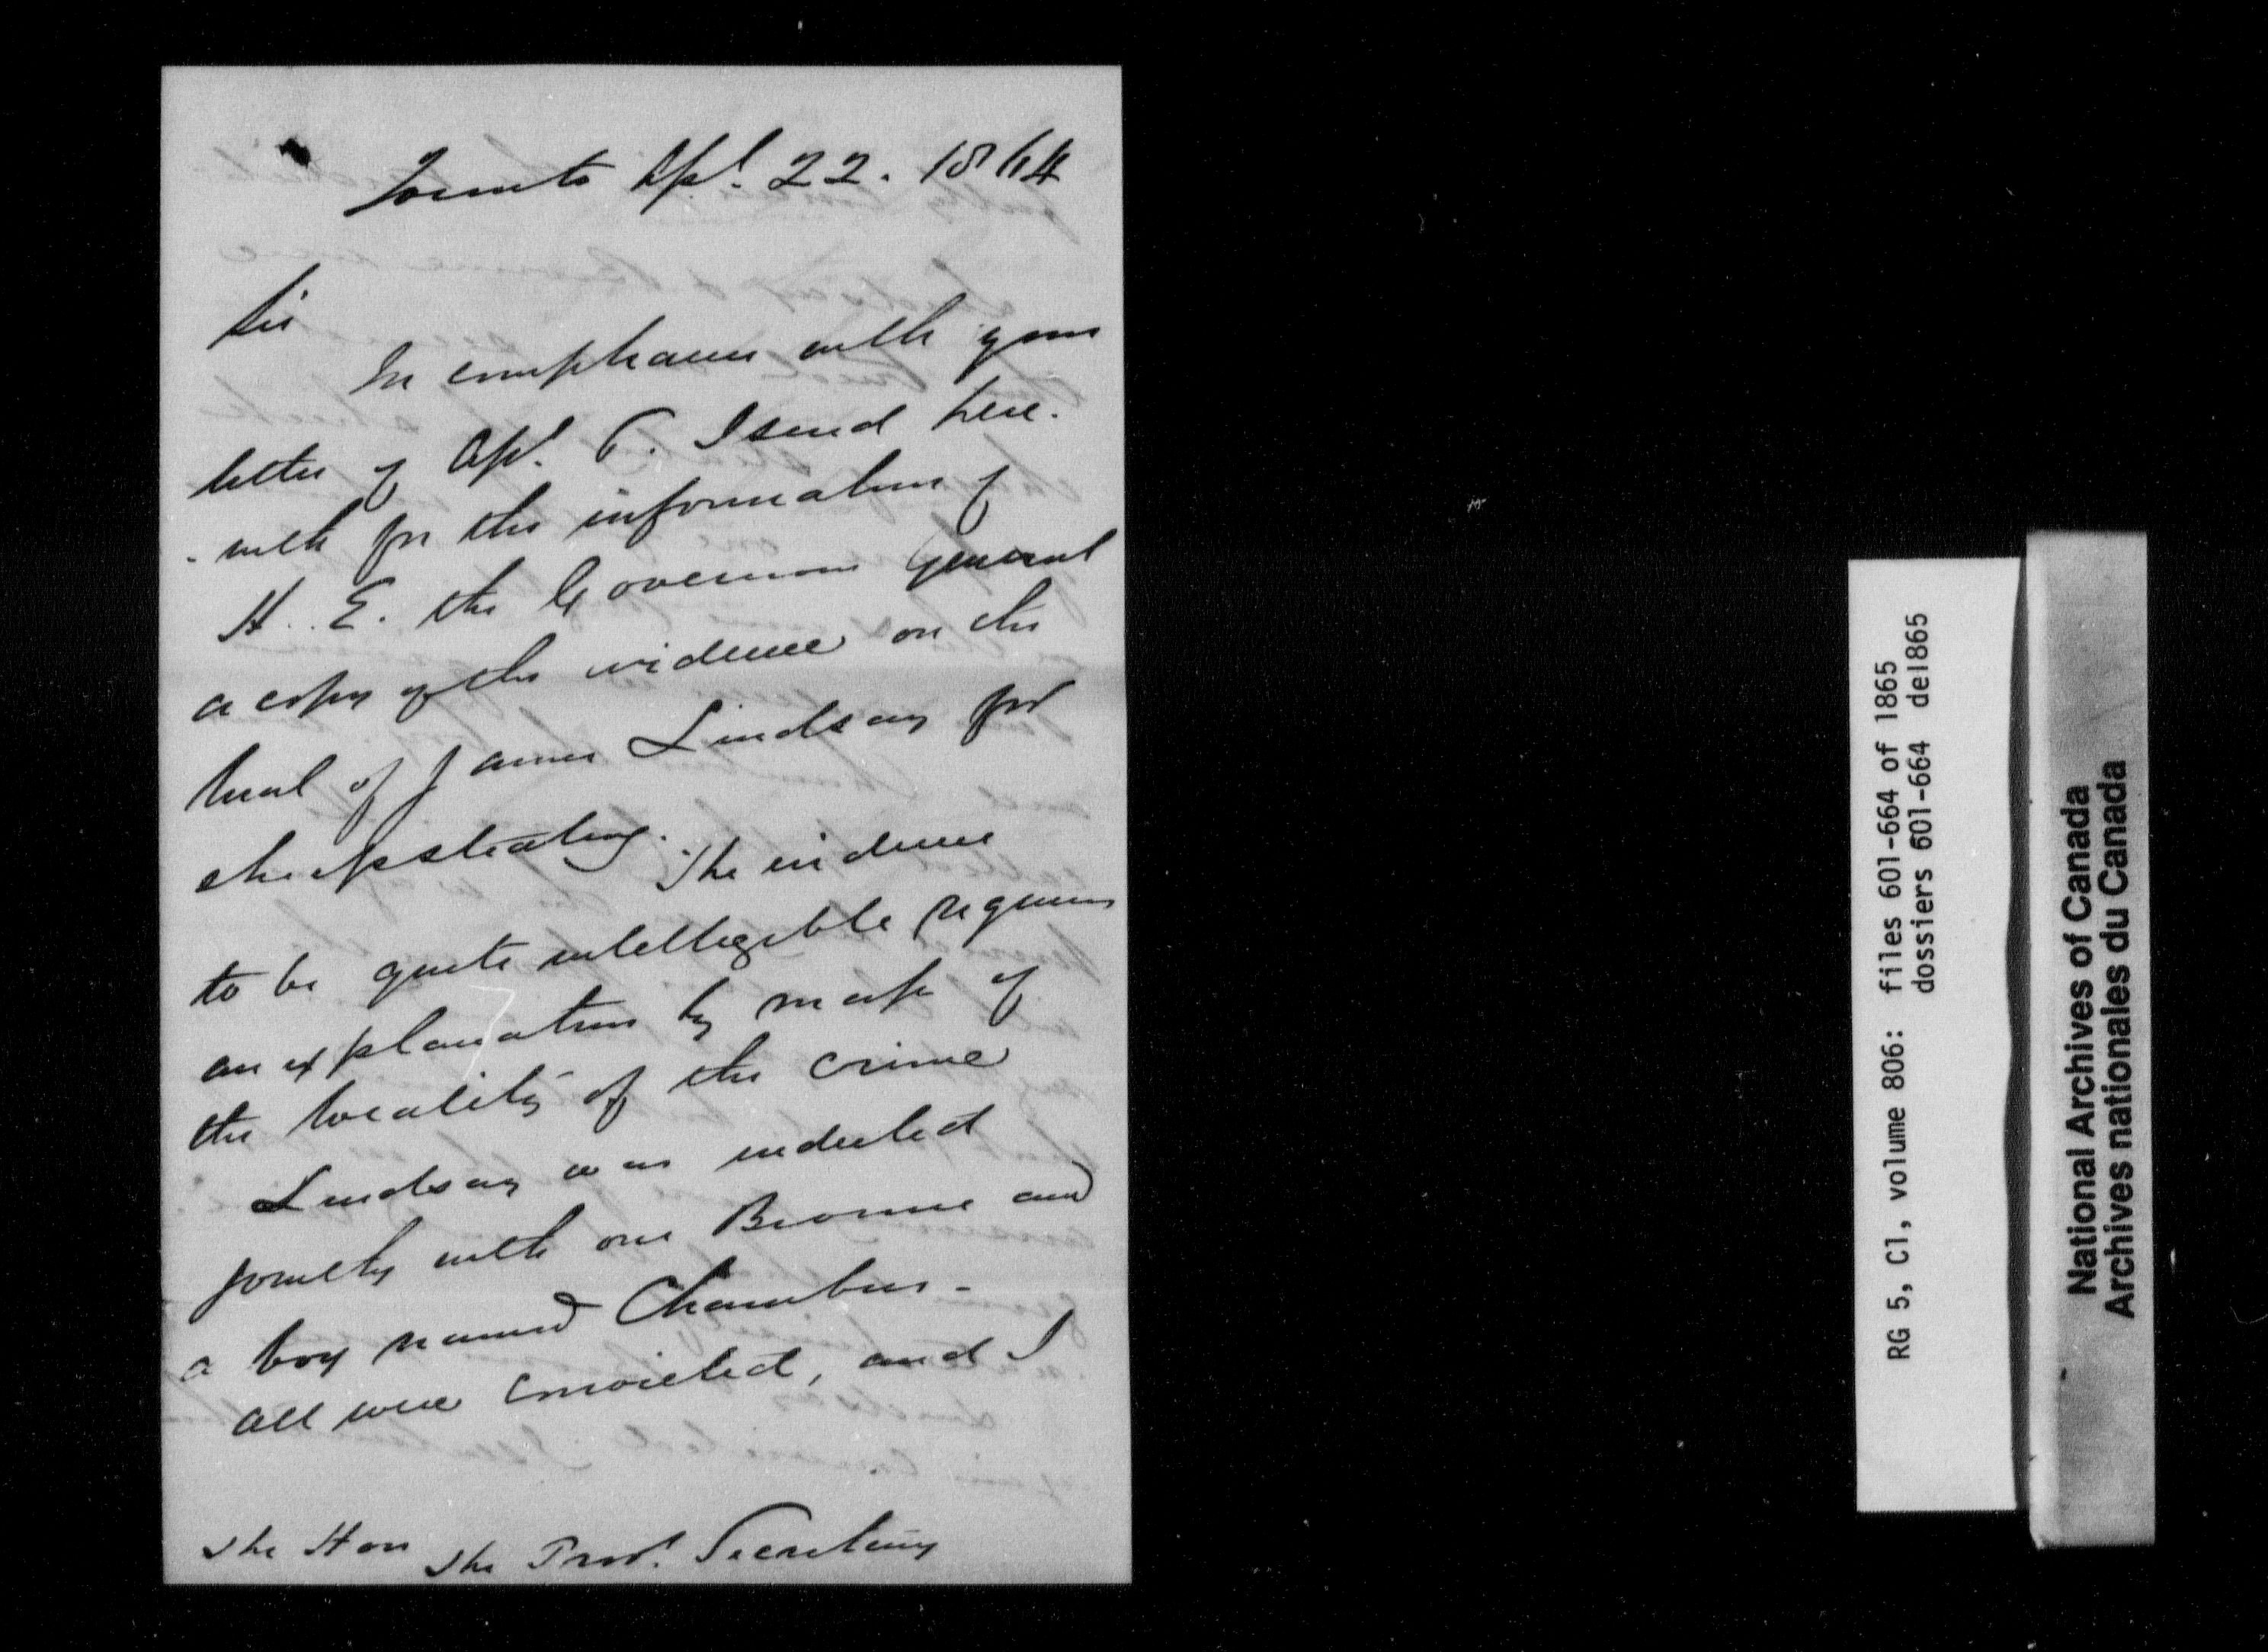 Toronto Apl. 22. 1864
Sir
In compliance with your
letter of Apl. 6. I send here-
-with for the information of
H. E. the Governor General
a copy of the evidence on the
trial of James Lindsay for
sheepstealing. The evidence
to be quite intelligible requires
an explanation by map of
the locality of the crime
Lindsay was indicted
jointly with one Browne and
a boy named Chambers -
all were convicted, and I
The Hon the Prov. Secretary
RG 5, C1, volume 806: files 601-664 of 1865
dossiers 601-664 de1865
National Archives of Canada
Archives nationales du Canada